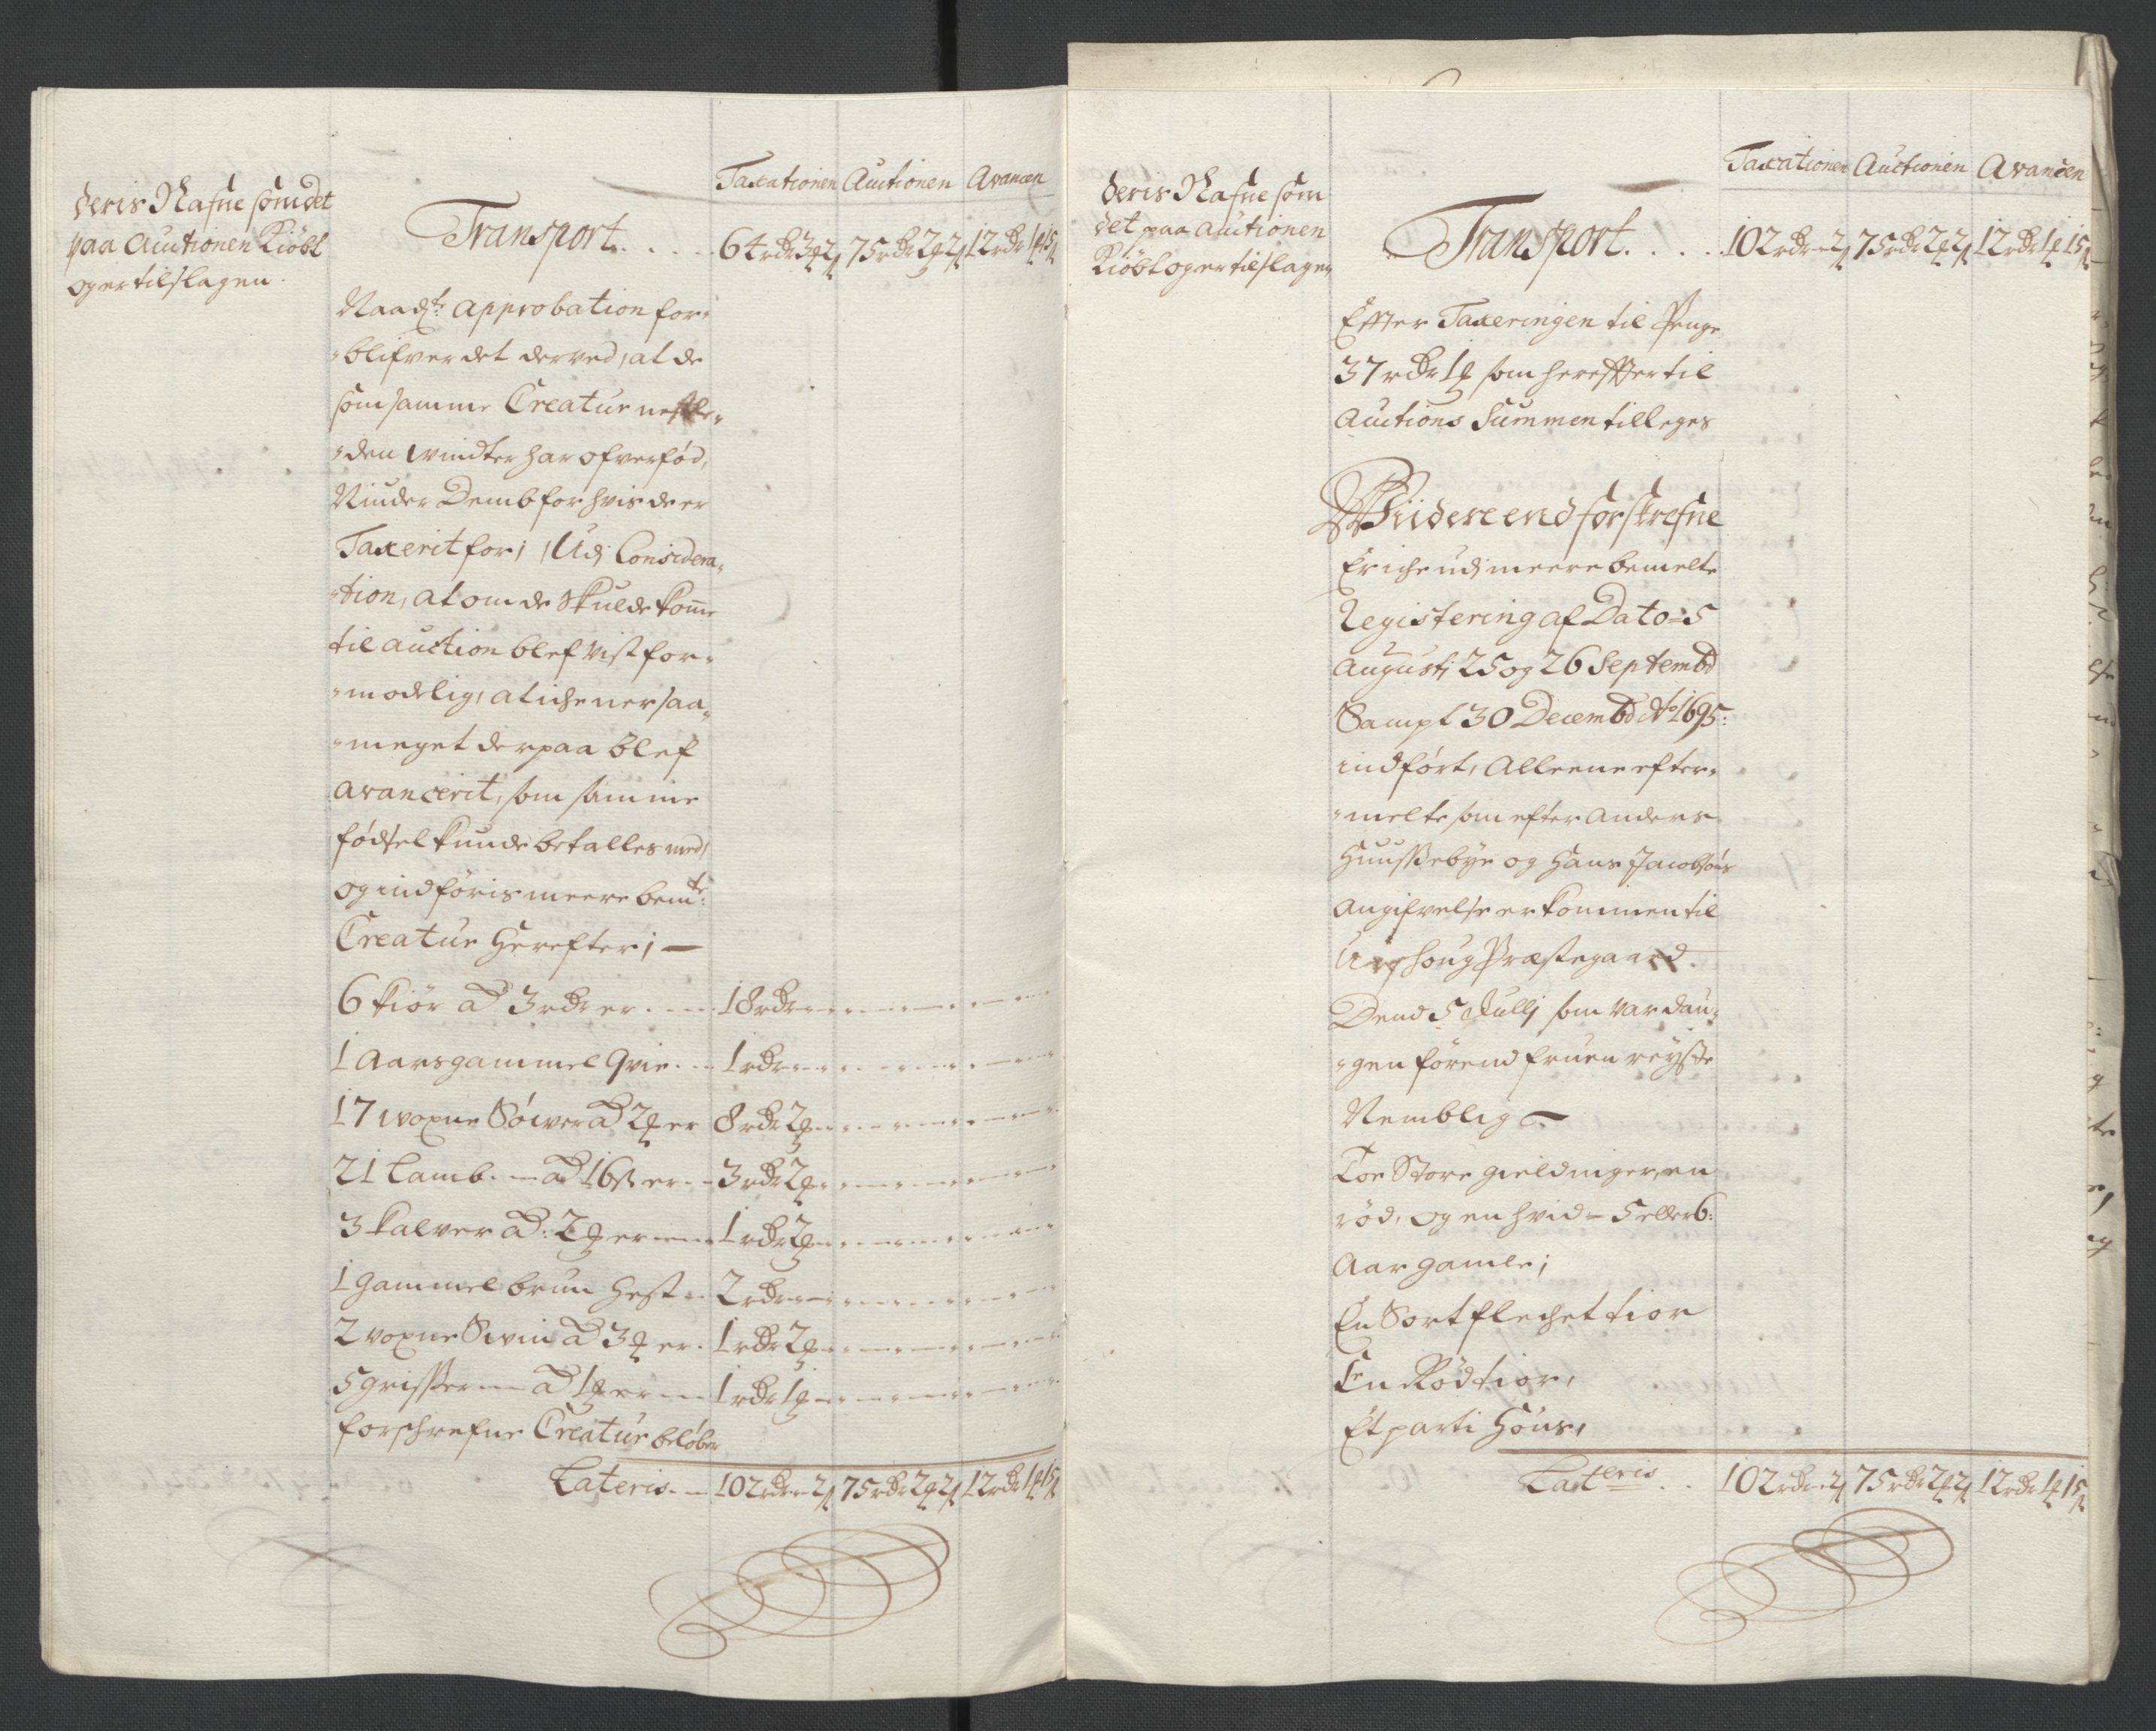 deris Nafne som det
paa Auctionen Kiöbt
og er tilslagen.
Taxationen Auctionen Avancen
Transport. . . . . 64 rdr 3 ort 2 s 75 rdr 2 ort 2 s 12 rdr 1 ort 15 s
Naadgte: Approbation for-
-blifver det derved, at de
som samme Creatur
-den windter har ofverfød,
Niuder Demb for hvis de er
Taxerit for; Udj Considera-
-tion, at om de skulde komme
til auction blef vist for-
-modelig, at iche ner saa-
-meget derpaa blef
avancerit, som samme
födsel kunde betalles med,
og indföris meere bemte:
Creatur Herefter; —
6 kiör ad 3 rdr er . . . . 18 rdr
1 Aarsgammel qvie . . . 1 rdr
17 woxne Söwer ad 2 ort er 8 rdr 2 ort
21 Lamb. — ad 16 s er — 3 rdr 2 ort
3 kalver ad: 2 ort er 1 rdr 2 ort
1 gammel brun Hest 2 rdr
2 voxne Swin ad 3 ort er . 1 rdr 2 ort
5 grisser — ad 1 ort er — 1 rdr 1 ort
forschrefne Creatur beløber
Lateris. — 102 rdr - 2 s 75 rdr 2 ort 2 s 12 rdr 1 ort 15 s
deris Nafne som
det paa Auctionen
Kiöbt og er tilslagen
Taxationen Auctionen Avancen
Transport. . . . . 102 rdr - 2 s 75 rdr 2 ort 2 s 12 rdr 1 ort 15 s
Effter Taxeringen til Penge
37 rdr 1 ort som hereffter til
Auctions Summen tilleges
Wiidere end forskrefne
Er iche udj meere bemelte
Registering af Dato = 5
Augustj 25 og 26 Septembr
Sampt 30 Decembr Ao 1695:
indfört, Alleene efter-
-melte som efter Anders
Huussebye og Hans Jacobsöns
angifvelse er kommen til
Præstegaard.
Dend 5 Jullj som var dau-
-gen förend fruen reyste
Nemblig —
Toe Store gieldinger, en
röd, og en hvid = 5 eller 6:
Aar gamle;
En Sort flechet tior
En Röd tior,
Et parti Höns,
Lateris . . 102 rdr - 2 s 75 rdr 2 ort 2 s 12 rdr 1 ort 15 s